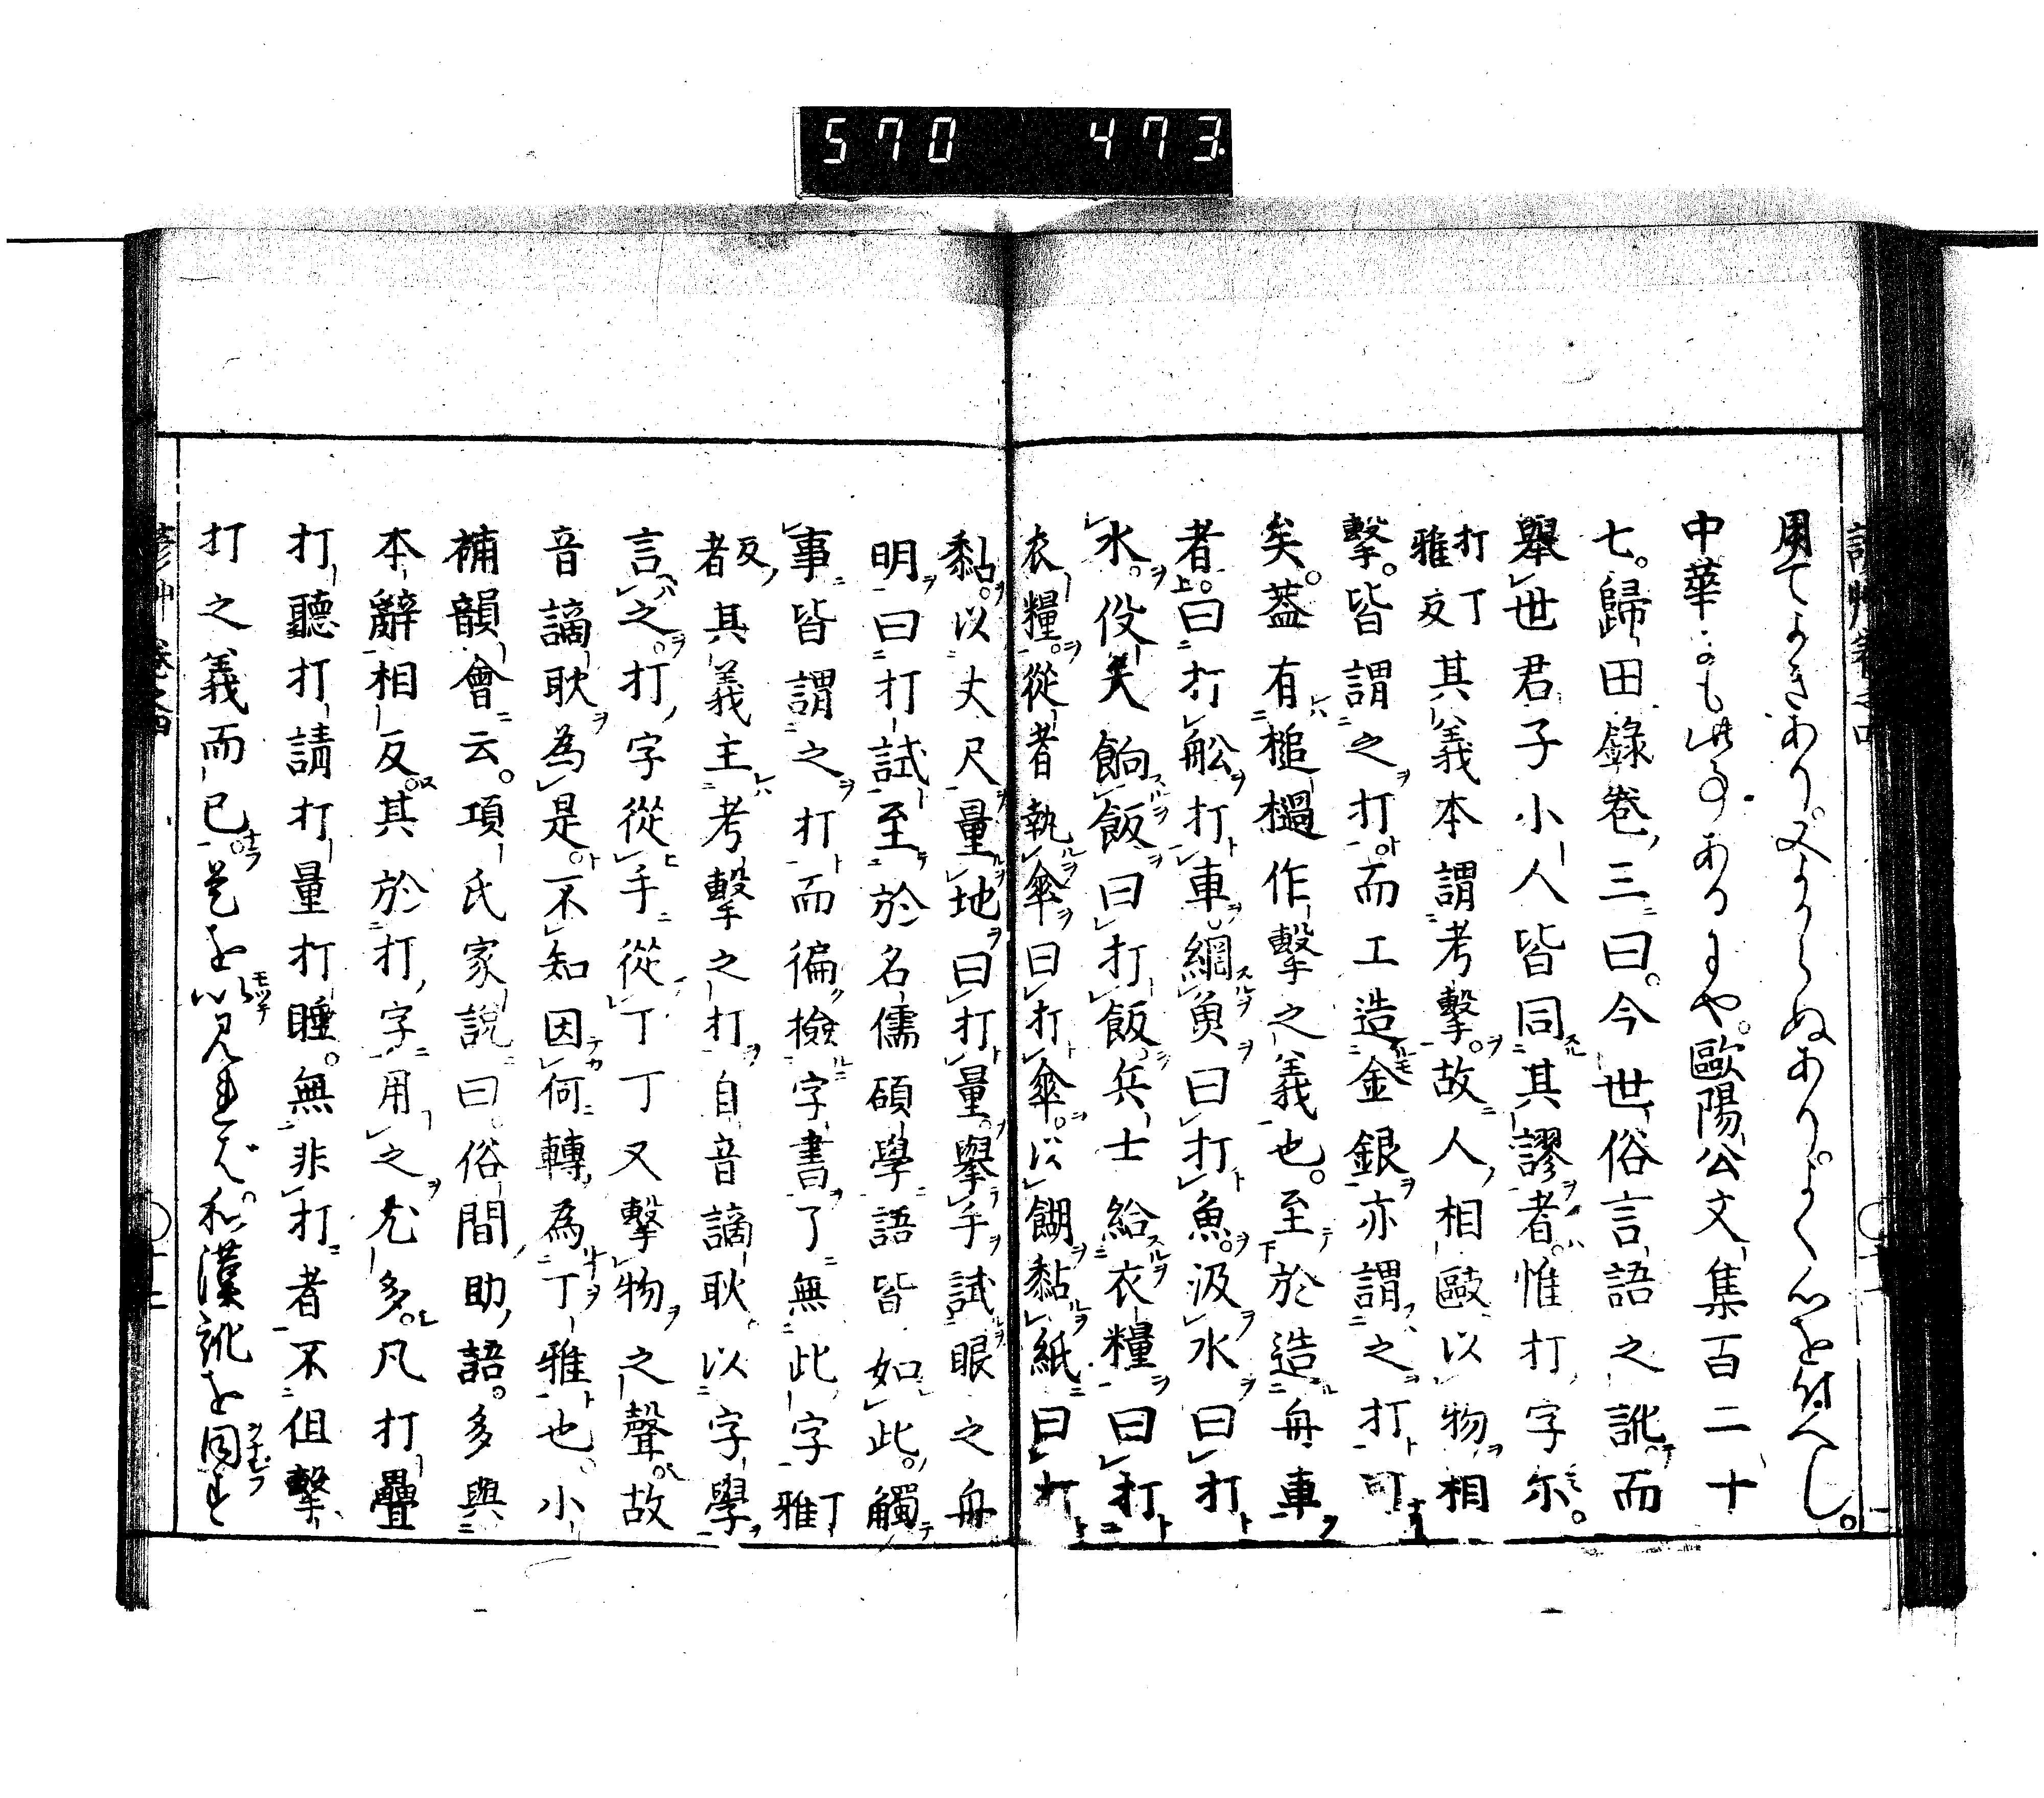 570 473
用てよきあり。又よからぬあり。よく心を付べし。
中華にも此事あるにや。歐陽公文集百二十
七。歸田錄卷三曰。今世俗言語之訛而
舉世君子小人皆同其謬者。惟打字尓。
打丁雅反其義本謂考擊。故人相毆以物相
擊。皆謂之打。而工造金銀亦謂之打可
矣。蓋有槌檛作擊之義也。至於造舟車
者。曰打舩打車。網魚曰打魚。汲水曰打
水。役夫餉飯曰打飯。兵士給衣糧曰打
衣糧。從者執傘曰打傘。以餬黏紙曰打
黏。以丈尺量地曰打量。擧手試眼之舟
明曰打試。至於名儒碩學語皆如此。觸
事皆謂之打。而徧撿字書了無此字丁雅
反者。其義主考擊之打。自音謫耿。以字學
言之。打字從手從丁。丁又擊物之聲。故
音謫耿為是。不知因何轉為丁雅也。小
補韻會云。項氏家說曰。俗間助語。多與
本辭相反。其於打字用之尤多。凡打疊
打聽打請打量打睡。無非打者。不但擊
打之義而已。是を以見れば。和漢訛を同す
卷之四
十二